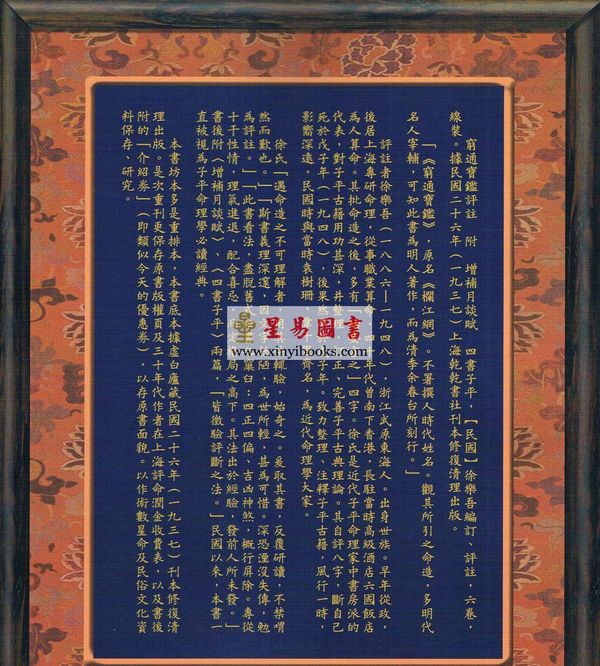 窮通寶鑑評註　附　增補月談賦　四書子平，【民國】徐樂吾編訂、評註，六卷，
線裝。據民國二十六年（一九三七）上海乾乾書社刊本修復清理出版。
「《窮通寶鑑》，原名《欄江網》。不署撰人時代姓名。觀其所引之命造，多明代
名人宰輔，可知此書為明人著作，而為清季余春台所刻行。」
評註者徐樂吾（一八八六—一九四八），浙江武原東海人。出身世族。早年從政，
後居上海專研命理，從事職業算命
年代曾南下香港，長駐當時高級酒店六國飯店
為人算命。其批命造之後，多有
之」四字。徐氏是近代子平命理家中書房派的
代表，對子平古籍用功甚深，并整理
正、完善子平古典理論。其自評八字，斷自己
死於戊子年（一九四八），後果然
子年。致力整理、注釋子平古籍，風行一時，
影嚮深遠，民國時與當時袁樹珊
齊名，為近代命理學大家。
徐氏「遇命造之不可理解者
輒驗，始奇之。爰取其書，反復研讀，不禁喟
然而歎也。」「斯書義理深邃，因文字
陋，為世所輕，甚為可惜。深恐湮沒失傳，勉
為評註。」「此書看法，盡脫舊
窠臼：四正四偏、吉凶神煞，概行屏除。專從
十干性情，理氣進退，配合喜忌
局之高下。其法出於經驗，發前人所未發。」
書後附《增補月談賦》、《四書子平》兩篇，「皆徵驗評斷之法。」民國以來，本書一
直被視為子平命理學必讀經典。
本書坊本多是重排本，本書底本據虛白廬藏民國二十六年（一九三七）刊本修復清
理出版。是次重刊更保存原書版權頁及三十年代作者在上海評命潤金收費表，以及書後
附的「介紹券」（即類似今天的優惠券），以存原書面貌。以作術數星命及民俗文化資
料保存、研究。
星易圖書
www.xinyibooks.com